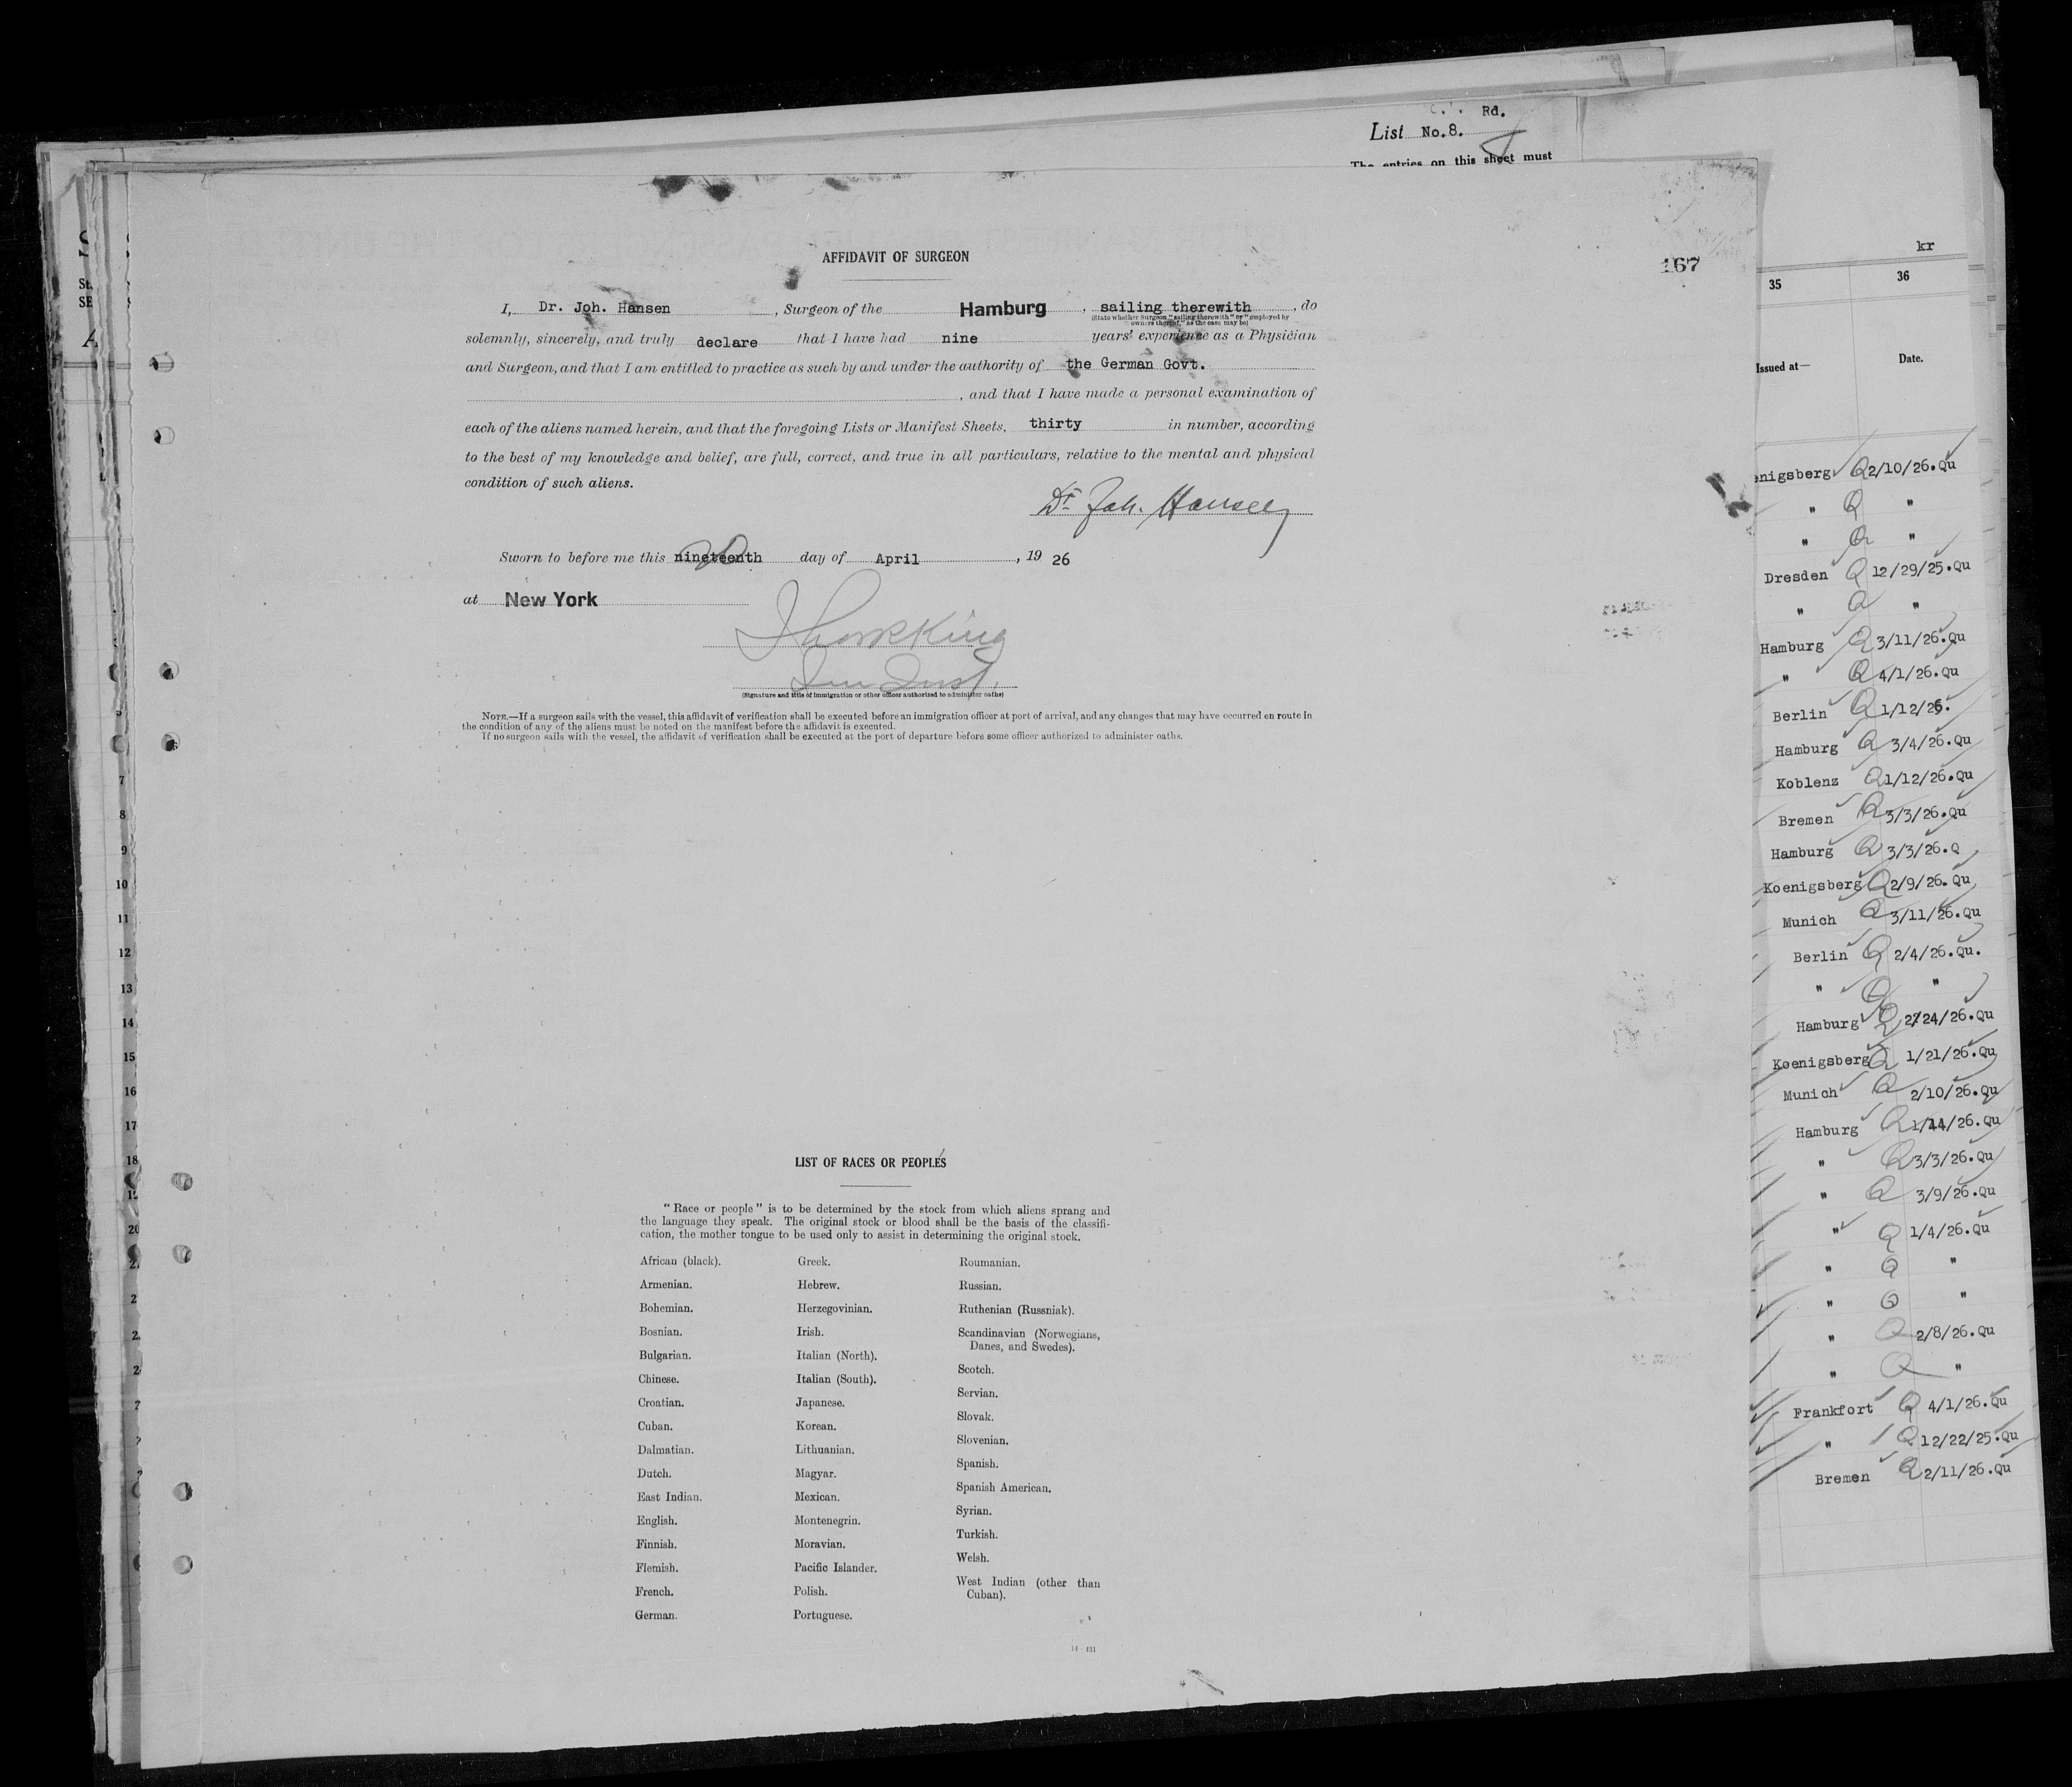 Rd.
List No.8.
The entries on this sheet must
AFFIDAVIT OF SURGEON
167
I, Dr. Joh. Hansen, Surgeon of the Hamburg, sailing therewith, do
(State whether Surgeon "sailing therewith" or "employed by
owners thereof," as the case may be)
solemnly, sincerely, and truly declare that I have had nine years' experience as a Physician
and Surgeon, and that I am entitled to practice as such by and under the authority of the German Govt.
, and that I have made a personal examination of
each of the aliens named herein, and that the foregoing Lists or Manifest Sheets, thirty in number, according
to the best of my knowledge and belief, are full, correct, and true in all particulars, relative to the mental and physical
condition of such aliens.
Dr. Joh. Hansen
Sworn to before me this nineteenth 20 day of April, 19 26
at New York
(Signature and title of immigration or other officer authorized to administer oaths)
NOTE.—If a surgeon sails with the vessel, this affidavit of verification shall be executed before an immigration officer at port of arrival, and any changes that may have occurred en route in
the condition of any of the aliens must be noted on the manifest before the affidavit is executed.
If no surgeon sails with the vessel, the affidavit of verification shall be executed at the port of departure before some officer authorized to administer oaths.
LIST OF RACES OR PEOPLES
"Race or people" is to be determined by the stock from which aliens sprang and
the language they speak. The original stock or blood shall be the basis of the classifi-
cation, the mother tongue to be used only to assist in determining the original stock.
African (black).
Armenian.
Bohemian.
Bosnian.
Bulgarian.
Chinese.
Croatian.
Cuban.
Dalmatian.
Dutch.
East Indian.
English.
Finnish.
Flemish.
French.
German.
Greek.
Hebrew.
Herzegovinian.
Irish.
Italian (North).
Italian (South).
Japanese.
Korean.
Lithuanian.
Magyar.
Mexican.
Montenegrin.
Moravian.
Pacific Islander.
Polish.
Portuguese.
Roumanian.
Russian.
Ruthenian (Russniak).
Scandinavian (Norwegians,
Danes, and Swedes).
Scotch.
Servian.
Slovak.
Slovenian.
Spanish.
Spanish American.
Syrian.
Turkish.
Welsh.
West Indian (other than
Cuban).
kr
35 36
Issued at— Date.
enigsberg Q 2/10/26.Qu
" Q "
" Q "
Dresden Q 12/29/25.Qu
" Q "
Hamburg Q 3/11/26.Qu
" Q 4/1/26.Qu
Berlin Q 1/12/26.
Hamburg Q 3/4/26.Qu
Koblenz Q 1/12/26.Qu
Bremen Q 3/3/26.Qu
Hamburg Q 3/3/26.Q
Koenigsberg Q 2/9/26.Qu
Munich Q 3/11/26.Qu
Berlin Q 2/4/26.Qu.
" Q "
Hamburg Q 2/24/26.Qu
Koenigsberg Q 1/21/26.Qu
Munich Q 2/10/26.Qu
Hamburg Q 1/14/26.Qu
" Q 3/3/26.Qu
" Q 3/9/26.Qu
" Q 1/4/26.Qu
" Q "
" Q "
" Q 2/8/26.Qu
" Q "
Frankfort Q 4/1/26.Qu
" Q 12/22/25.Qu
Bremen Q 2/11/26.Qu
7
8
9
10
11
12
13
14
15
16
17
18
20